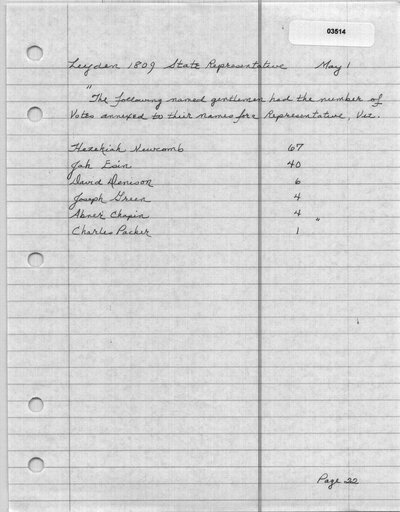 03514
Leyden 1809 State Representative May 1
"The following named gentlemen had the number of
Votes annexed to their names for a Representative, Viz.
Hezekiah Newcomb 67
Jah Esin 40
David Denison 6
Joseph Green 4
Abner Chapin 4 "
Charles Packer 1
Page 22